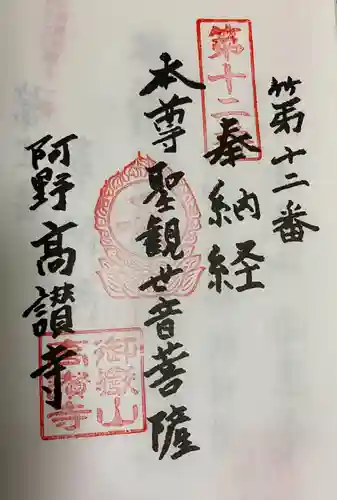 第十二番
第十二
奉納経
本尊聖観世音菩薩
阿野高讃寺
御嶽山
高讃寺